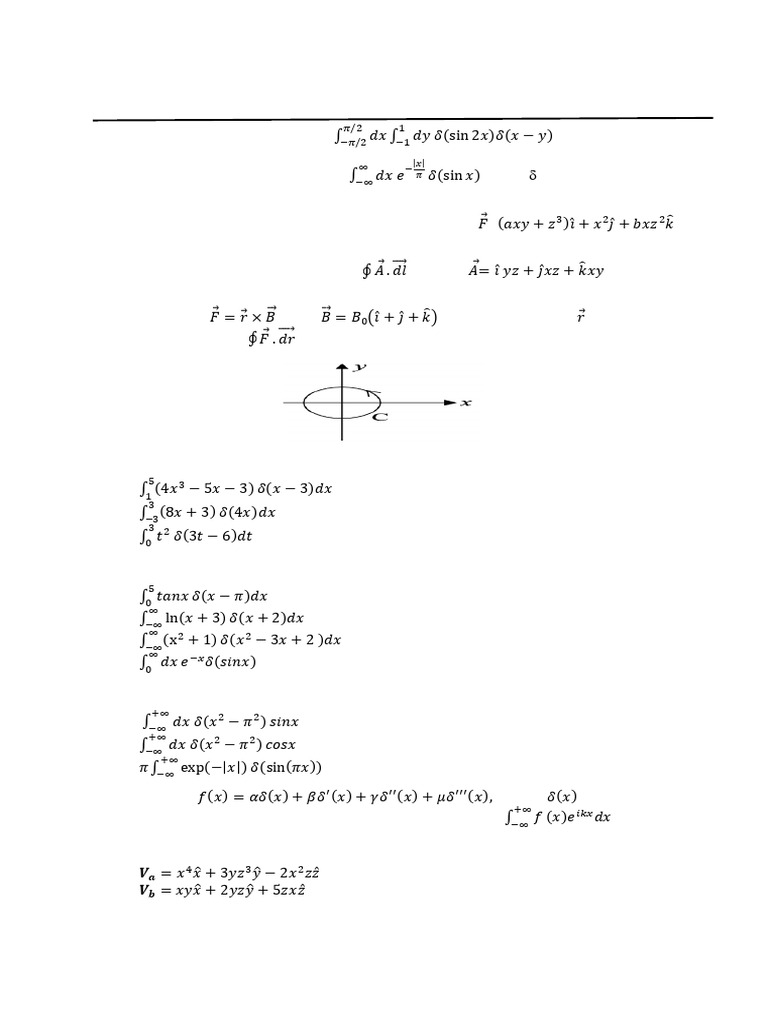 ∫_{-π/2}^{π/2} dx ∫_{-1}^{1} dy δ(sin 2x)δ(x − y)
∫_{-∞}^{∞} dx e^{-|x|/π} δ(sin x) δ
F⃗ (axy + z³)î + x²ĵ + bxz²k̂
∮ A⃗ . dl⃗ A⃗= î yz + ĵxz + k̂xy
F⃗ = r⃗ × B⃗ B⃗ = B₀(î + ĵ + k̂) r⃗
∮ F⃗ . dr⃗
y
x
C
∫_{1}^{5}(4x³ − 5x − 3) δ(x − 3)dx
∫_{-3}^{3}(8x + 3) δ(4x)dx
∫_{0}^{3} t² δ(3t − 6)dt
∫_{0}^{5} tanx δ(x − π)dx
∫_{-∞}^{∞} ln(x + 3) δ(x + 2)dx
∫_{-∞}^{∞}(x² + 1) δ(x² − 3x + 2 )dx
∫_{0}^{∞} dx e^{-x}δ(sinx)
∫_{-∞}^{+∞} dx δ(x² − π²) sinx
∫_{-∞}^{+∞} dx δ(x² − π²) cosx
π ∫_{-∞}^{+∞} exp(−|x|) δ(sin(πx))
f(x) = αδ(x) + βδ′(x) + γδ′′(x) + μδ′′′(x), δ(x)
∫_{-∞}^{+∞} f (x)e^{ikx}dx
V_a = x⁴x̂ + 3yz³ŷ − 2x²zẑ
V_b = xyx̂ + 2yzŷ + 5zxẑ